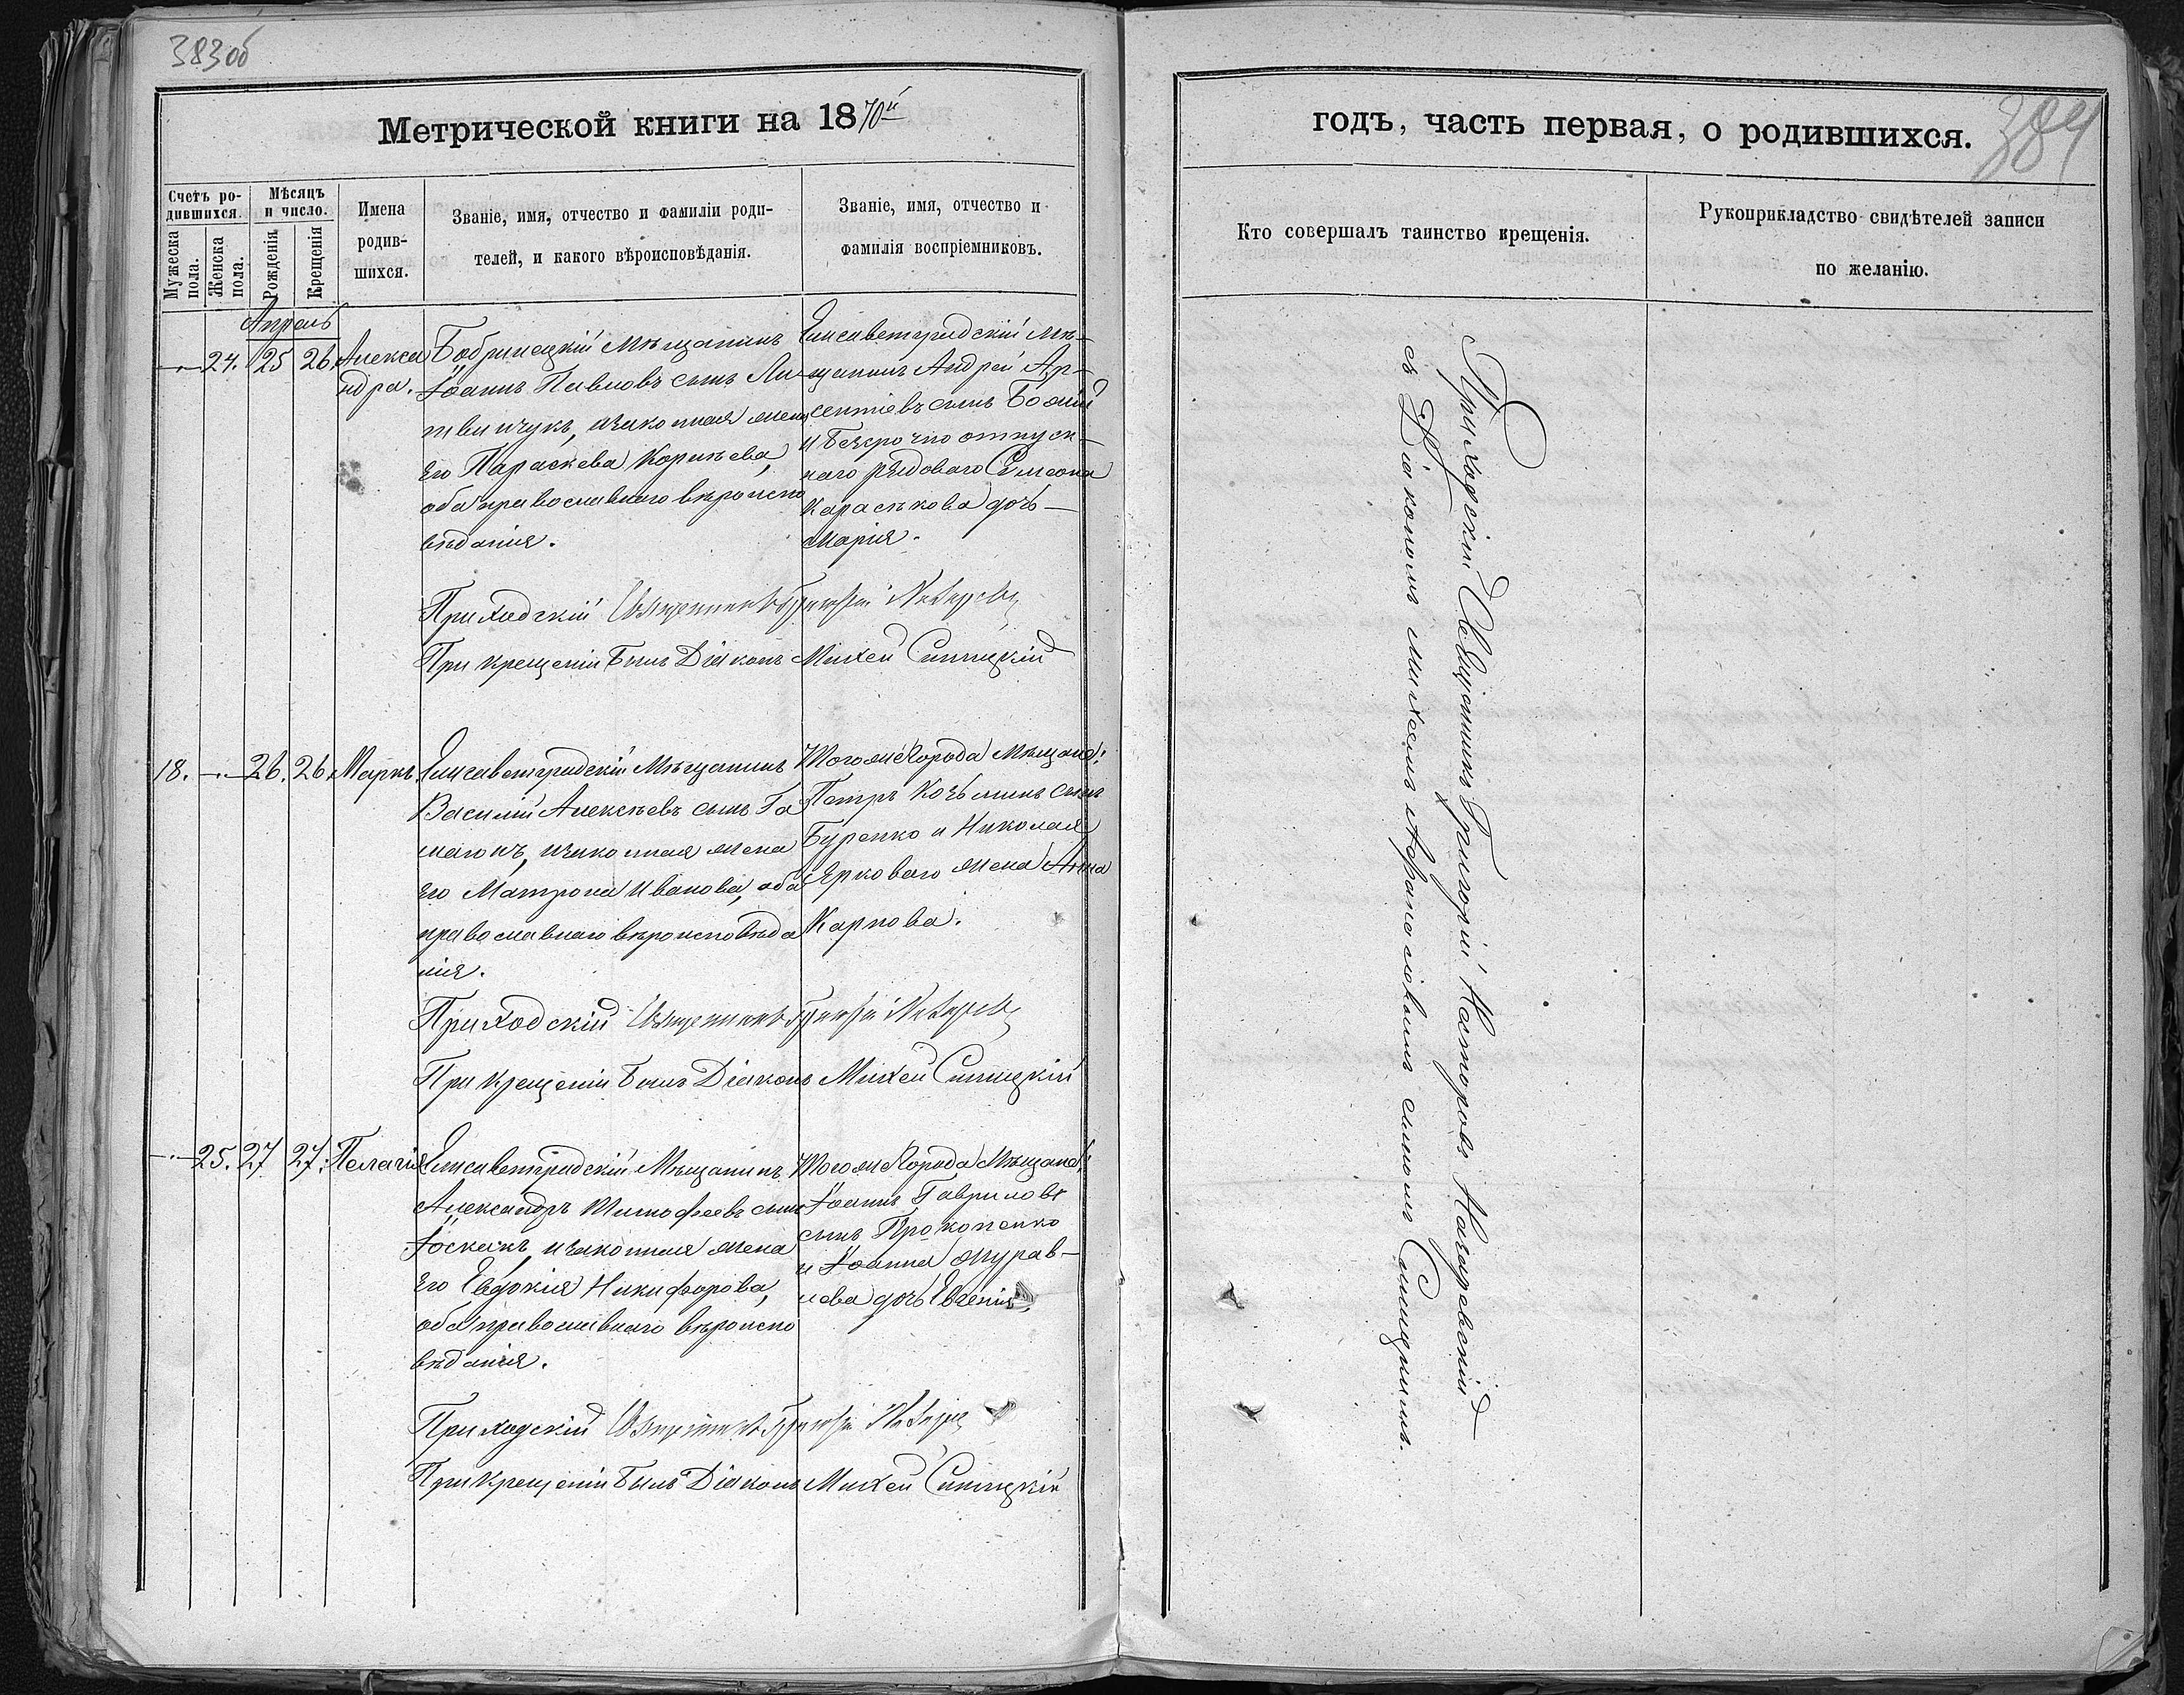 383об
Метрической книги на 1870й
Счетъ родившихся.
Мужеска пола.
Женска пола.
Мѣсяцъ и число.
Рожденія.
Крещенія.
Имена родив-
шихся.
Званіе, имя, отчество и фамиліи роди-
телей, и какого вѣроисповѣданія.
Званіе, имя, отчество и
фамилія воспріемниковъ.
Апрель
24. 25 26. Алекса
ндра.
Бобринецкій Мѣщанинъ
Іоаннъ Павловъ сынъ Ли-
твинчукъ, законная жена
его Параскева Корнѣева,
оба православнаго вѣроиспо
вѣданія.
Елисаветградскій Мѣ-
щанинъ Андрей Ар-
сентіевъ сынъ Божій
и безсрочно отпуск-
наго рядоваго Симеона
Караськова дочь
Марія.
Приходскій Священникъ Григорій
При крещеніи былъ Діаконъ Михей Синицкій
18. 26. 26. Маркъ.
Елисаветградскій Мѣщанинъ
Василій Алексѣевъ сынъ Га
законная жена
его Матрона Иванова, оба
православнаго вѣроисповѣда
нія.
Того же города Мѣщане:
Петръ Козьминъ сынъ
Буренко и Николая
Ярковаго жена Анна
Карпова.
Приходскій Священникъ Григорій
При крещеніи былъ Діаконъ Михей Синицкій
25. 27 27. Пелагія
Елисаветградскій Мѣщанинъ
Александръ Тимофеевъ сынъ
законная жена
его Евдокія Никифорова,
оба православнаго вѣроиспо
вѣданія.
Того же города Мѣщане:
Іоаннъ Гавриловъ
сынъ Прокопенко
и Іоанна Журав-
лева дочь Евгенія.
Приходскій Священникъ Григорій
При крещеніи былъ Діаконъ Михей Синицкій
384
годъ, часть первая, о родившихся.
Кто совершалъ таинство крещенія.
Рукоприкладство свидѣтелей записи
по желанію.
Приходскій Священникъ Григорій
съ Діакономъ Михеемъ Синицкимъ.